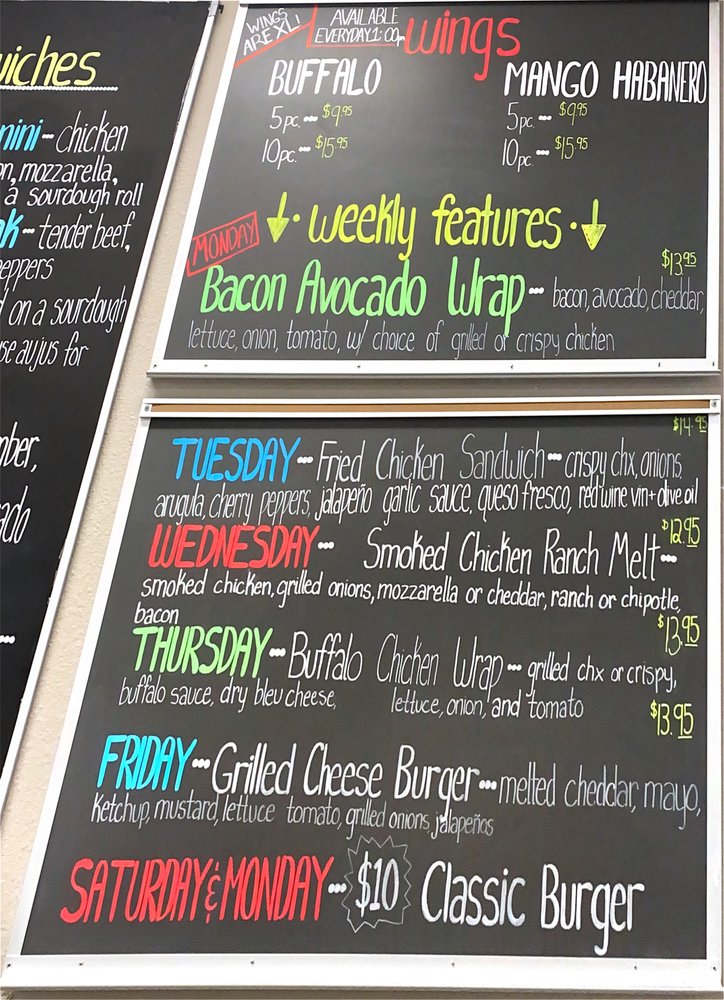 iches
nini - chicken
on, mozzarella,
a sourdough roll
ak - tender beef,
eppers
d on a sourdough
se aujus for
mber,
ado
...
WINGS ARE XL!
AVAILABLE
EVERYDAY 1:00pm
wings
BUFFALO
5pc. --- $9.95
10pc. --- $15.95
MANGO HABANERO
5pc. --- $9.95
10pc. --- $15.95
MONDAY
↓ · weekly features · ↓
$13.95
Bacon Avocado Wrap --- bacon, avocado, cheddar,
lettuce, onion, tomato, w/ choice of grilled or crispy chicken
$14.95
TUESDAY --- Fried Chicken Sandwich --- crispy chx, onions,
arugula, cherry peppers, jalapeño garlic sauce, queso fresco, red wine vin + olive oil
$12.95
WEDNESDAY --- Smoked Chicken Ranch Melt ---
smoked chicken, grilled onions, mozzarella or cheddar, ranch or chipotle,
bacon
$13.95
THURSDAY --- Buffalo Chicken Wrap --- grilled chx or crispy,
buffalo sauce, dry bleu cheese, lettuce, onion, and tomato
$13.95
FRIDAY --- Grilled Cheese Burger --- melted cheddar, mayo,
ketchup, mustard, lettuce tomato, grilled onions, jalapeños
SATURDAY & MONDAY --- $10 Classic Burger